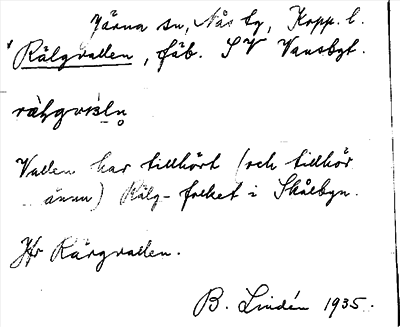 Järna sn, Nås tg, Kopp. l.
Rälgvallen, fäb. SV Vansbyt.
Vallen har tillhört (och tillhör
ännu) Rälg-folket i Skålbyn.
Jfr Rärgvallen.
B. Lindén 1935.